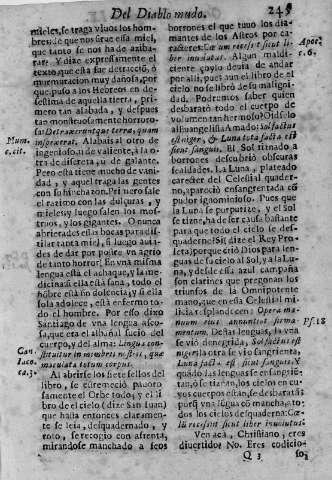 Del Diablo mudo. 245
mieles, se traga vivos los hom-
bres: de que nos sirve essa miel,
que tanto se nos ha de aziba-
rar? Y dize expressamente el
texto, que esta fue detracciõ, ò
murmuracion muy dañosa, por
que puso a los Hebreos en de-
sestima de aquella tierra, pri-
mero tan alabada, y despues
tan monstruosamente horroro-
sa: Detraxeruntque terra, quam
inspexerant. Alabais al otro de
ingenioso, ù de valiente, a la o-
tra de discreta, ù de galante.
Pero està tiene mucho de vani-
dad, y aquel traga las gentes
con su hinchazon. Primero sale
el razimo con las dulçuras, y
mieles; y luego salen los mons-
truos, y los gigantes. O nunca
abrierades essa bocas para dis-
tilar tanta miel, si luego aviades
de dar por postre vn agrio
de tanto horror. En vna misma
lengua està el achaque, y la me-
dicina: si ella està sana, todo el
hõbre està sin dolencia; y si ella
sola adolece, està enfermo to-
do el hombre. Por esso dixo
Santiago de vna lengua asco-
sa, que era el albañal sucio del
cuerpo, y del alma: Lingua cons-
tituitur in membris nostris, quæ
maculata totum corpus.
Al abrirse los siete sellos del
libro, se estremeciò pavoro-
samente el Orbe todo; y el li-
bro de el cielo (dize San Juan)
que hasta entonces claramen-
te se leia, desquadernado, y
roto, se recogiò con afrenta,
mirandose manchado a seos
borrones el que tuvo los dia-
mantes de los Astros por ca-
racteres: Cœlum recessit sicut li-
ber involutus. Algun maldi-
ciente
por alli, pues aun el libro de el
cielo no se librò de su maligni-
dad. Podremos saber quien
desbaratò todo el cuerpo de
volumen tan hermoso? Oidselo
al Evangelista Amado: Sol factus
est niger, & Luna tota facta est
sicut sanguis. El Sol tiznado a
borrones descubriò obscuras
fealdades. La Luna, plateado
caracter del Celestial quader-
no, apareciò ensangrentada cõ
pudor ignominioso. Pues que
la Luna se purpurize, y el Sol
se tizne, ha de ser causa bastante
para que todo el cielo se des-
quaderne? Si; dize el Rey Pro-
feta; porque criò Dios para len-
guas de su cielo al Sol, y a la Lu-
na, y desde essa azul campaña
son clarines que pregonan los
triunfos de la Omnipotente
mano, que en essa Celestial mi-
licia resplandecen: Opera ma-
nuum eius annuntiat firma-
mentum. De estas lenguas, la vna
se viò denegrida, Sol factus est
niger; la otra se viò sangrienta,
Luna facta est sicut sanguis. Y
quando las lenguas se ensangriẽ-
tan, ò se tiznan, los cielos en cu-
yos cuerpos estàn, se desbaratã:
porq̃ vna lẽgua cõ mancha, a to-
dos los cielos desquaderna: Cœ-
lũ recessit sicut liber involutus.
Ven acà, Christiano, eres
divertido? No. Eres codicio-
Q 3 so?
Num.
c. cit.
Can.
Iaco.
ca. 3.
Apoc.
c. 6.
Ps. 18